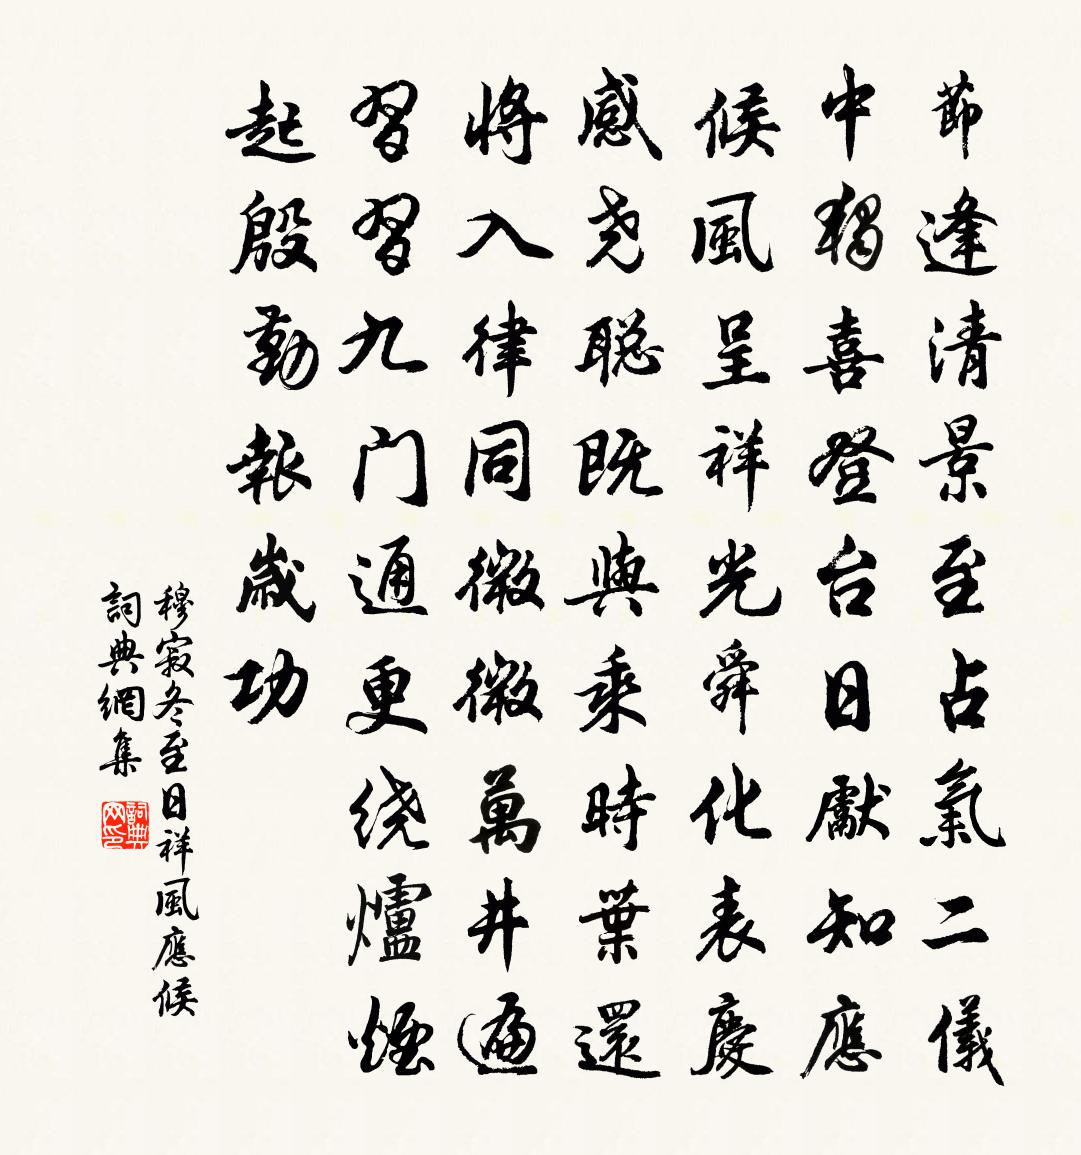 節逢清景至占氣二儀
中獨喜登台日獻知應
候風呈祥光舜化表慶
感尧聪既與乘時葉還
將入律同微微萬井遍
習習九门通更绕爐煙
起殷勤報歲功
穆寂冬至日祥風應候
詞典網集
詞典网印